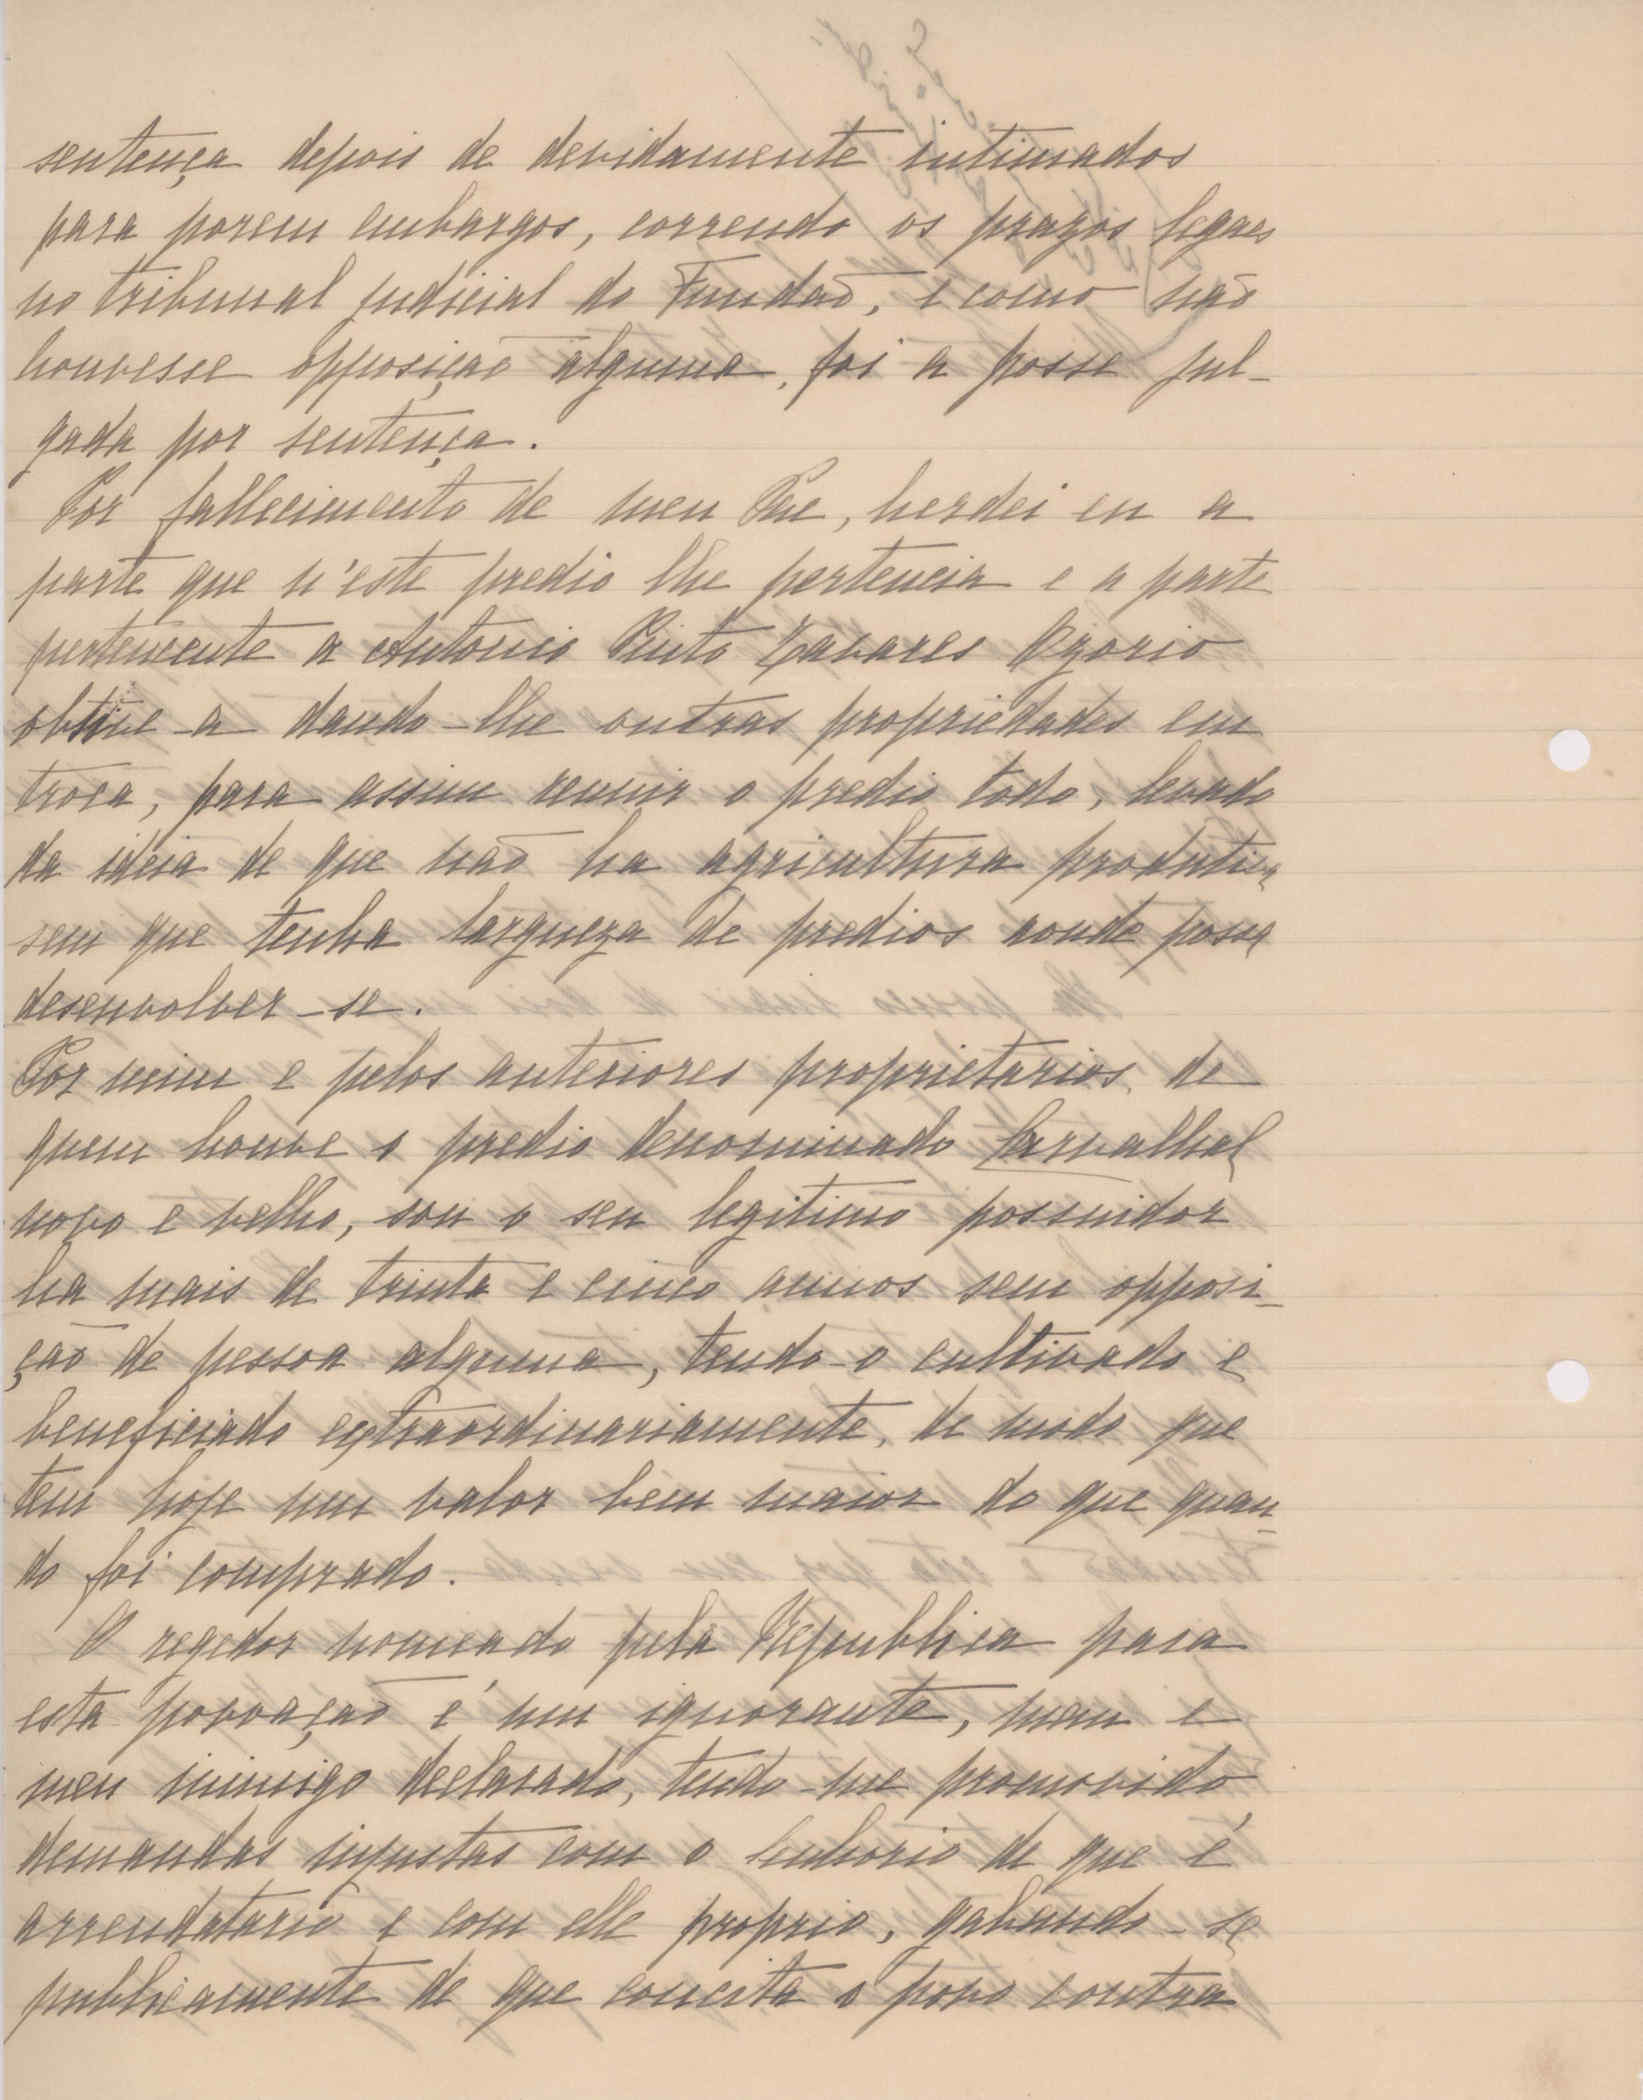 sentença depois de devidamente intimados
para porem embargos, correndo os prazos legaes
no tribunal judicial do Fundão, e como não
houvesse opposição alguma, foi a posse jul-
gada por sentença.
Por fallecimento de meu Pae, herdei eu a
parte que n'este predio lhe pertencia e a parte
pertencente a Antonio Pinto Tavares Ozorio
obtive-a dando-lhe outras propriedades em
troca, para assim reunir o predio todo, levado
da ideia de que não ha agricultura produtiva
sem que tenha largueza de predios aonde possa
desenvolver-se.
Por mim e pelos anteriores proprietarios, de
quem houve o predio denominado Carvalhal
novo e velho, sou o seu legitimo possuidor
ha mais de trinta e cinco annos sem opposi-
ção de pessoa alguma, tendo-o cultivado e
beneficiado extraordinariamente, de modo que
tem hoje um valor bem maior do que quan-
do foi comprado.
O regedor nomeado pela Republica para
esta povoação é um ignorante, mau e
meu inimigo declarado, tendo-me promovido
demandas injustas com o senhorio de que é
arrendatario e com elle proprio, gabando-se
publicamente de que concita o povo contra